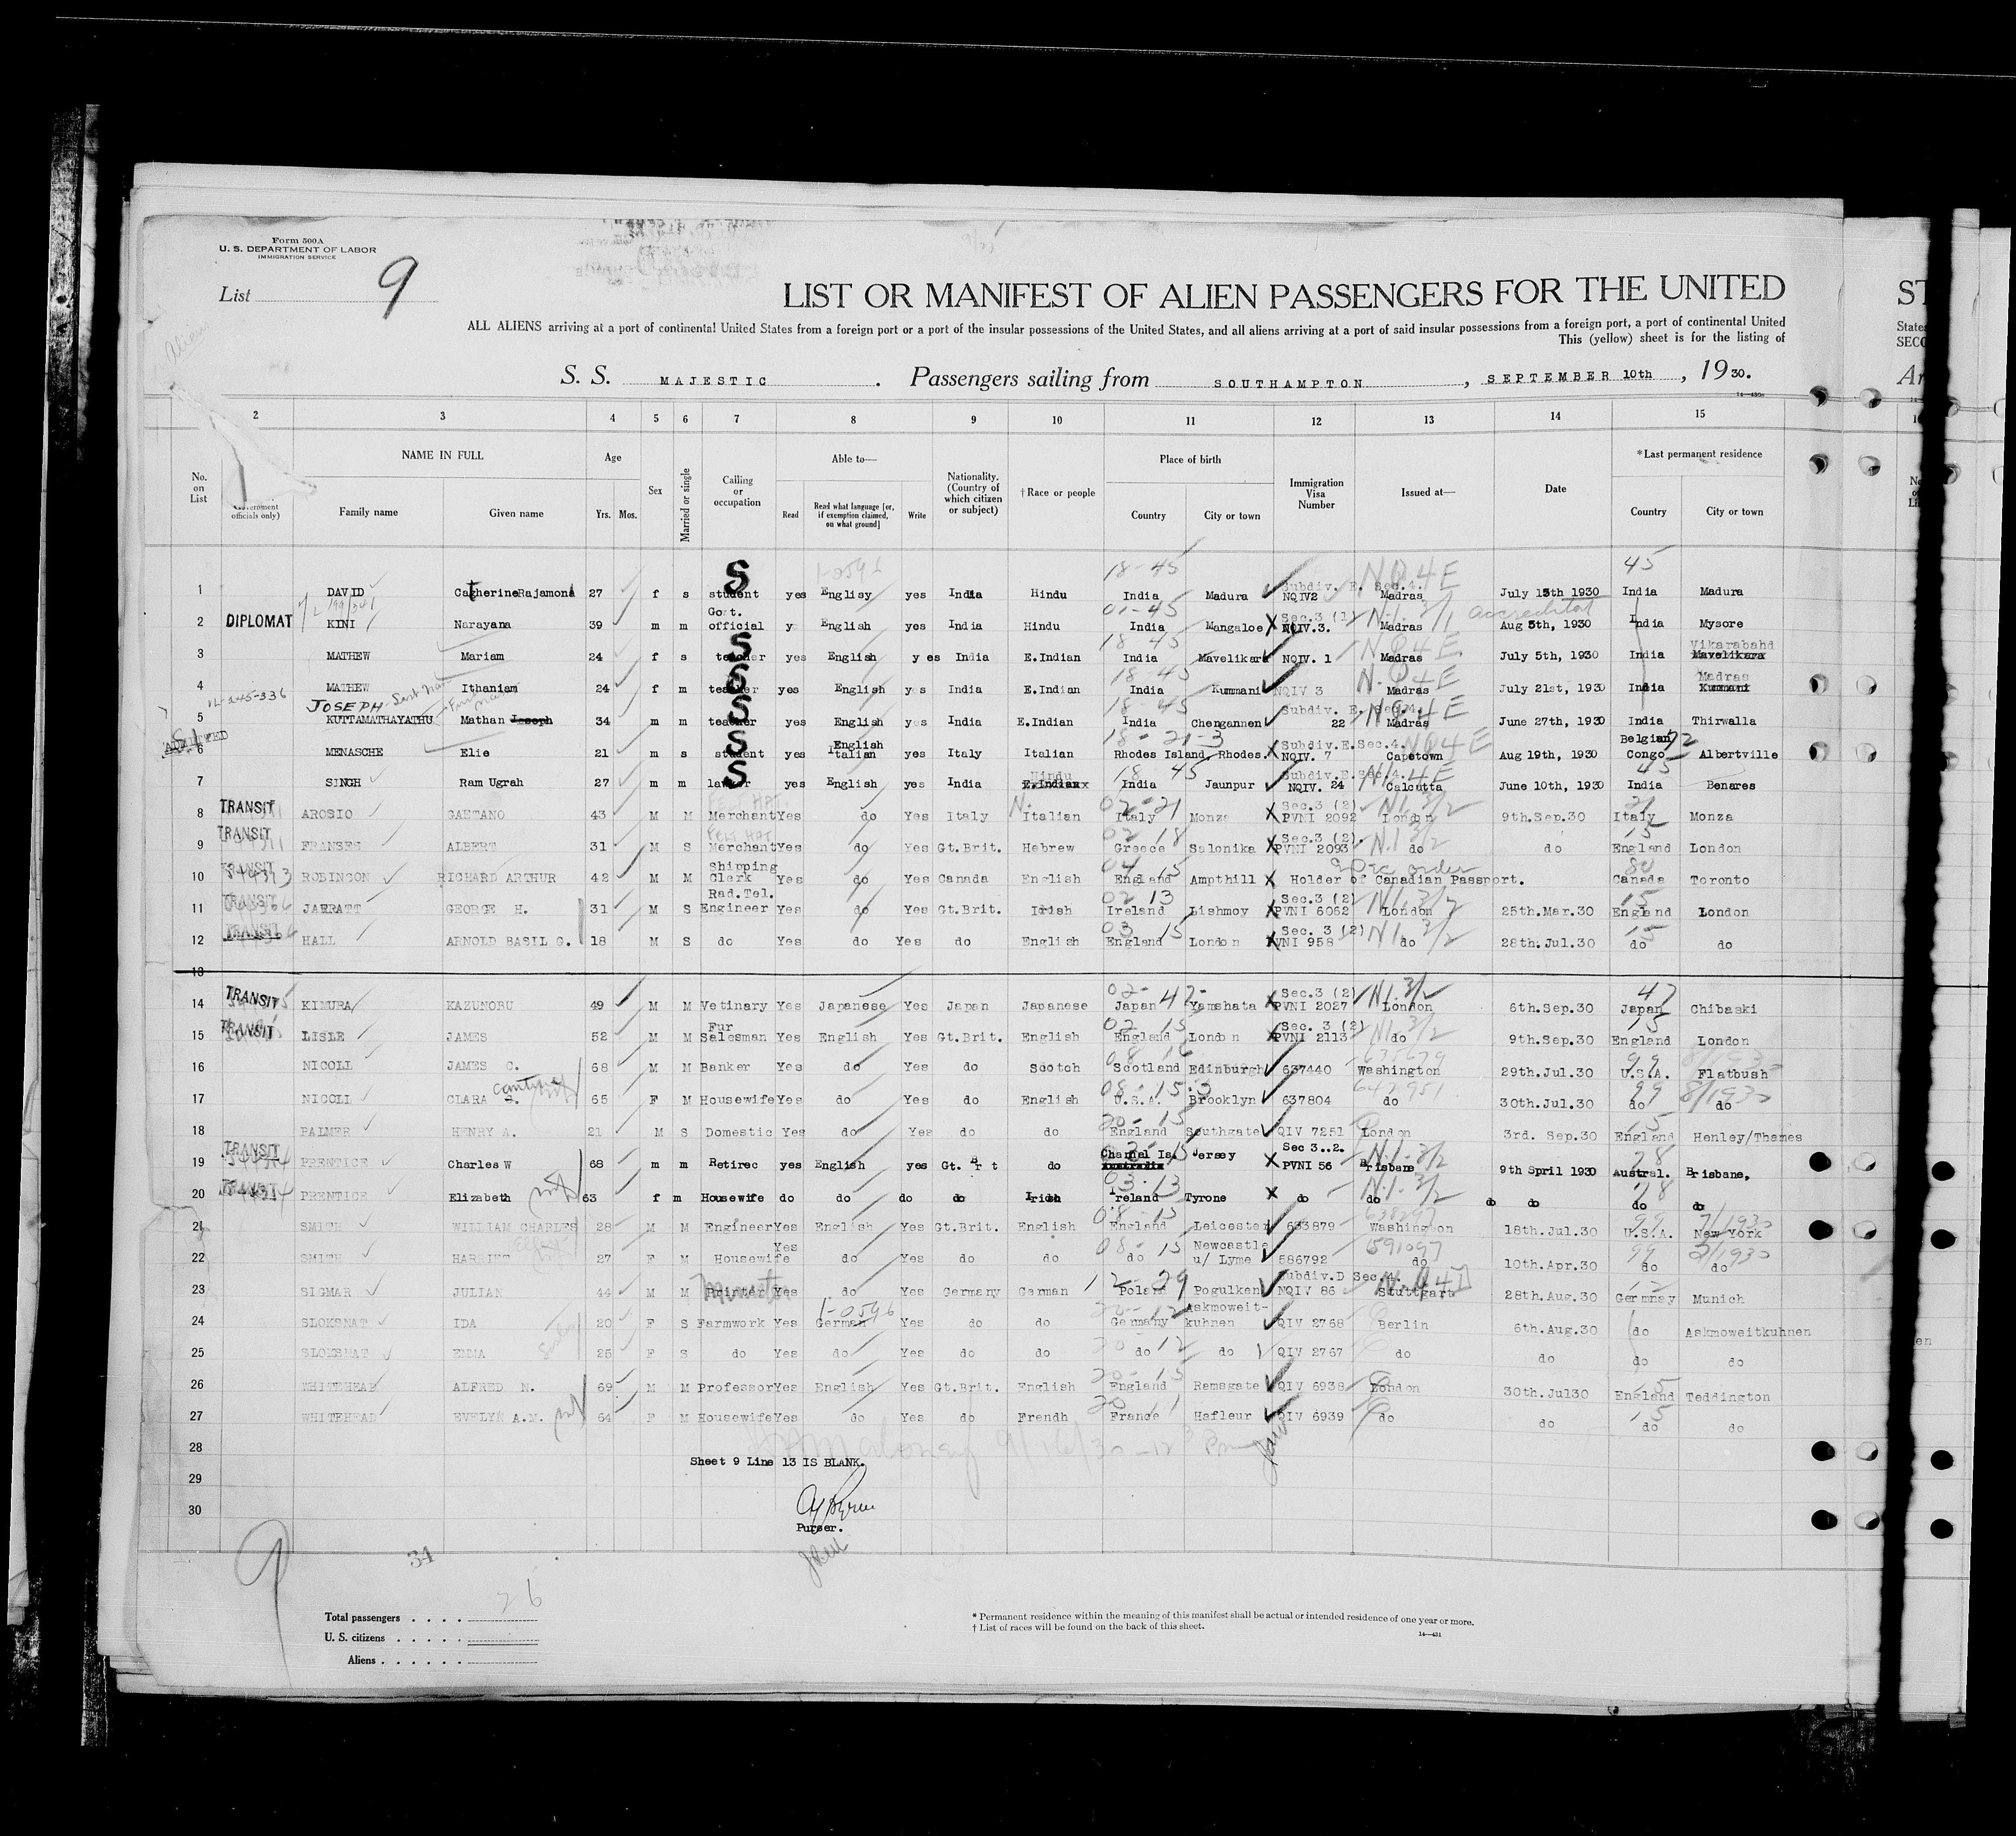 Form 500A
U. S. DEPARTMENT OF LABOR
IMMIGRATION SERVICE
List 9
LIST OR MANIFEST OF ALIEN PASSENGERS FOR THE UNITED
ALL ALIENS arriving at a port of continental United States from a foreign port or a port of the insular possessions of the United States, and all aliens arriving at a port of said insular possessions from a foreign port, a port of continental United
This (yellow) sheet is for the listing of
S. S. MAJESTIC . Passengers sailing from SOUTHAMPTON , SEPTEMBER 10th , 1930.
2 3 4 5 6 7 8 9 10 11 12 13 14 15
No. on List
officials only)
NAME IN FULL
Family name Given name
Age
Yrs. Mos.
Sex
Married or single
Calling or occupation
Able to—
Read Read what language [or, if exemption claimed, on what ground] Write
Nationality. (Country of which citizen or subject)
† Race or people
Place of birth
Country City or town
Immigration Visa Number
Issued at—
Date
* Last permanent residence
Country City or town
1 DAVID Catherine Rajamona 27 f s student yes Englisy yes India Hindu India Madura Subdiv. E. Sec.4. NQIV2 Madras July 15th 1930 India Madura
2 DIPLOMAT KINI Narayana 39 m m Govt. official y English yes India Hindu India Mangaloe Sec.3 (1) NQIV.3. Madras Aug 5th, 1930 India Mysore
3 MATHEW Mariam 24 f s teacher yes English yes India E.Indian India Mavelikara NQIV. 1 Madras July 5th, 1930 India Vikarabahd Mavelikara
4 MATHEW Ithaniam 24 f m teacher yes English yes India E.Indian India Kummani NQIV 3 Madras July 21st, 1930 India Madras Kummani
5 JOSEPH KUTTAMATHAYATHU Mathan Joseph 34 m m teacher yes English yes India E.Indian India Chengannen Subdiv. E. Sec.4. 22 Madras June 27th, 1930 India Thirwalla
6 ADMITTED MENASCHE Elie 21 m s student yes English Italian yes Italy Italian Rhodes Island. Rhodes. Subdiv.E.Sec.4. NQIV. 7 Capetown Aug 19th, 1930 Belgian Congo Albertville
7 SINGH Ram Ugrah 27 m m lawyer yes English yes India Hindu E.Indian India Jaunpur Subdiv.E.Sec.4. NQIV. 24 Calcutta June 10th, 1930 India Benares
8 TRANSIT AROSIO GAETANO 43 M M Merchant Yes do Yes Italy Italian Italy Monza Sec.3 (2) PVNI 2092 London 9th.Sep.30 Italy Monza
9 TRANSIT FRANSES ALBERT 31 M S Merchant Yes do Yes Gt.Brit. Hebrew Greece Salonika Sec.3 (2) PVNI 2093 do do England London
10 TRANSIT ROBINSON RICHARD ARTHUR 42 M M Shipping Clerk Yes do Yes Canada English England Ampthill Holder of Canadian Passport. Canada Toronto
11 TRANSIT JARRATT GEORGE H. 31 M S Rad.Tel. Engineer Yes do Yes Gt.Brit. Irish Ireland Lishmoy Sec.3 (2) PVNI 6062 London 25th.Mar.30 England London
12 TRANSIT HALL ARNOLD BASIL G. 18 M S do Yes do Yes do English England London Sec. 3 (2) PVNI 958 do 28th.Jul.30 do do
13
14 TRANSIT KIMURA KAZUNOBU 49 M M Vetinary Yes Japanese Yes Japan Japanese Japan Yamahata Sec.3 (2) PVNI 2027 London 6th.Sep.30 Japan Chibaski
15 TRANSIT LISLE JAMES 52 M M Fur Salesman Yes English Yes Gt.Brit. English England London Sec. 3 (2) PVNI 2113 do 9th.Sep.30 England London
16 NICOLL JAMES C. 68 M M Banker Yes do Yes do Scotch Scotland Edinburgh 637440 Washington 29th.Jul.30 U.S.A. Flatbush
17 NICOLL CLARA 65 F M Housewife Yes do Yes do English U.S.A. Brooklyn 637804 do 30th.Jul.30 do do
18 PALMER HENRY A. 21 M S Domestic Yes do Yes do do England Southgate QIV 7251 London 3rd. Sep.30 England Henley/Thames
19 TRANSIT PRENTICE Charles W 68 m m Retirec yes English yes Gt. Brt do Channel Is. Australia Jersey Sec 3..2. PVNI 56 Brisbane 9th April 1930 Austral. Brisbane,
20 TRANSIT PRENTICE Elizabeth 63 f m Housewife do do do do Irish Ireland Tyrone do do do do do do
21 SMITH WILLIAM CHARLES 28 M M Engineer Yes English Yes Gt.Brit. English England Leicester 633879 Washington 18th.Jul.30 U.S.A. New York
22 SMITH HARRIET 27 F M Housewife Yes do Yes do do do Newcastle u/ Lyme 586792 do 10th.Apr.30 do do
23 SIGMAR JULIAN 44 M M Printer Yes do Yes Germany German Poland Pogulken Subdiv.D Sec.4. NQIV 86 Stuttgart 28th.Aug.30 Germnay Munich
24 SLOKSNAT IDA 20 F S Farmwork Yes German Yes do do Germany Askmoweit-kuhnen QIV 2768 Berlin 6th.Aug.30 do Askmoweitkuhnen
25 SLOKSNAT EMMA 25 F S do Yes do Yes do do do do QIV 2767 do do do do
26 WHITEHEAD ALFRED N. 69 M M Professor Yes English Yes Gt.Brit. English England Ramsgate QIV 6938 London 30th.Jul30 England Teddington
27 WHITEHEAD EVELYN A.M. 64 F M Housewife Yes do Yes do Frendh France Hafleur QIV 6939 do do do do
28
Sheet 9 Line 13 IS BLANK.
29
30
Purser.
9
34
Total passengers . . . . 26
U. S. citizens . . . . .
Aliens . . . . . .
* Permanent residence within the meaning of this manifest shall be actual or intended residence of one year or more.
† List of races will be found on the back of this sheet.
14—431